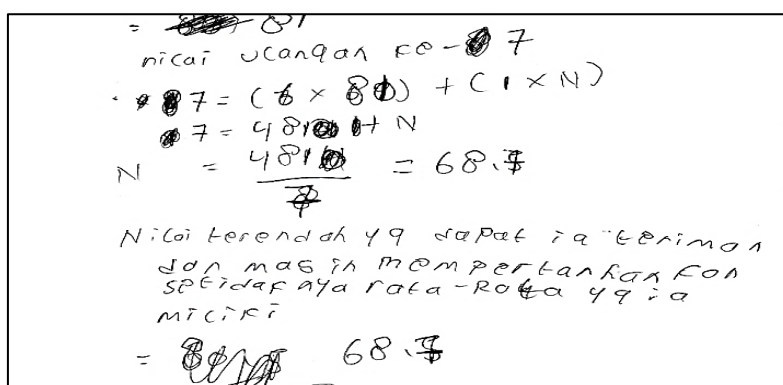 = 81
nilai ulangan ke-7
7 = (6 × 81) + (1 × N)
7 = 481 + N
N = 481 / 7 = 68.7
Nilai terendah yg dapat ia teriman
dan masih mempertankankan
setidaknya rata-Rata yg ia
miliki
= 68.7